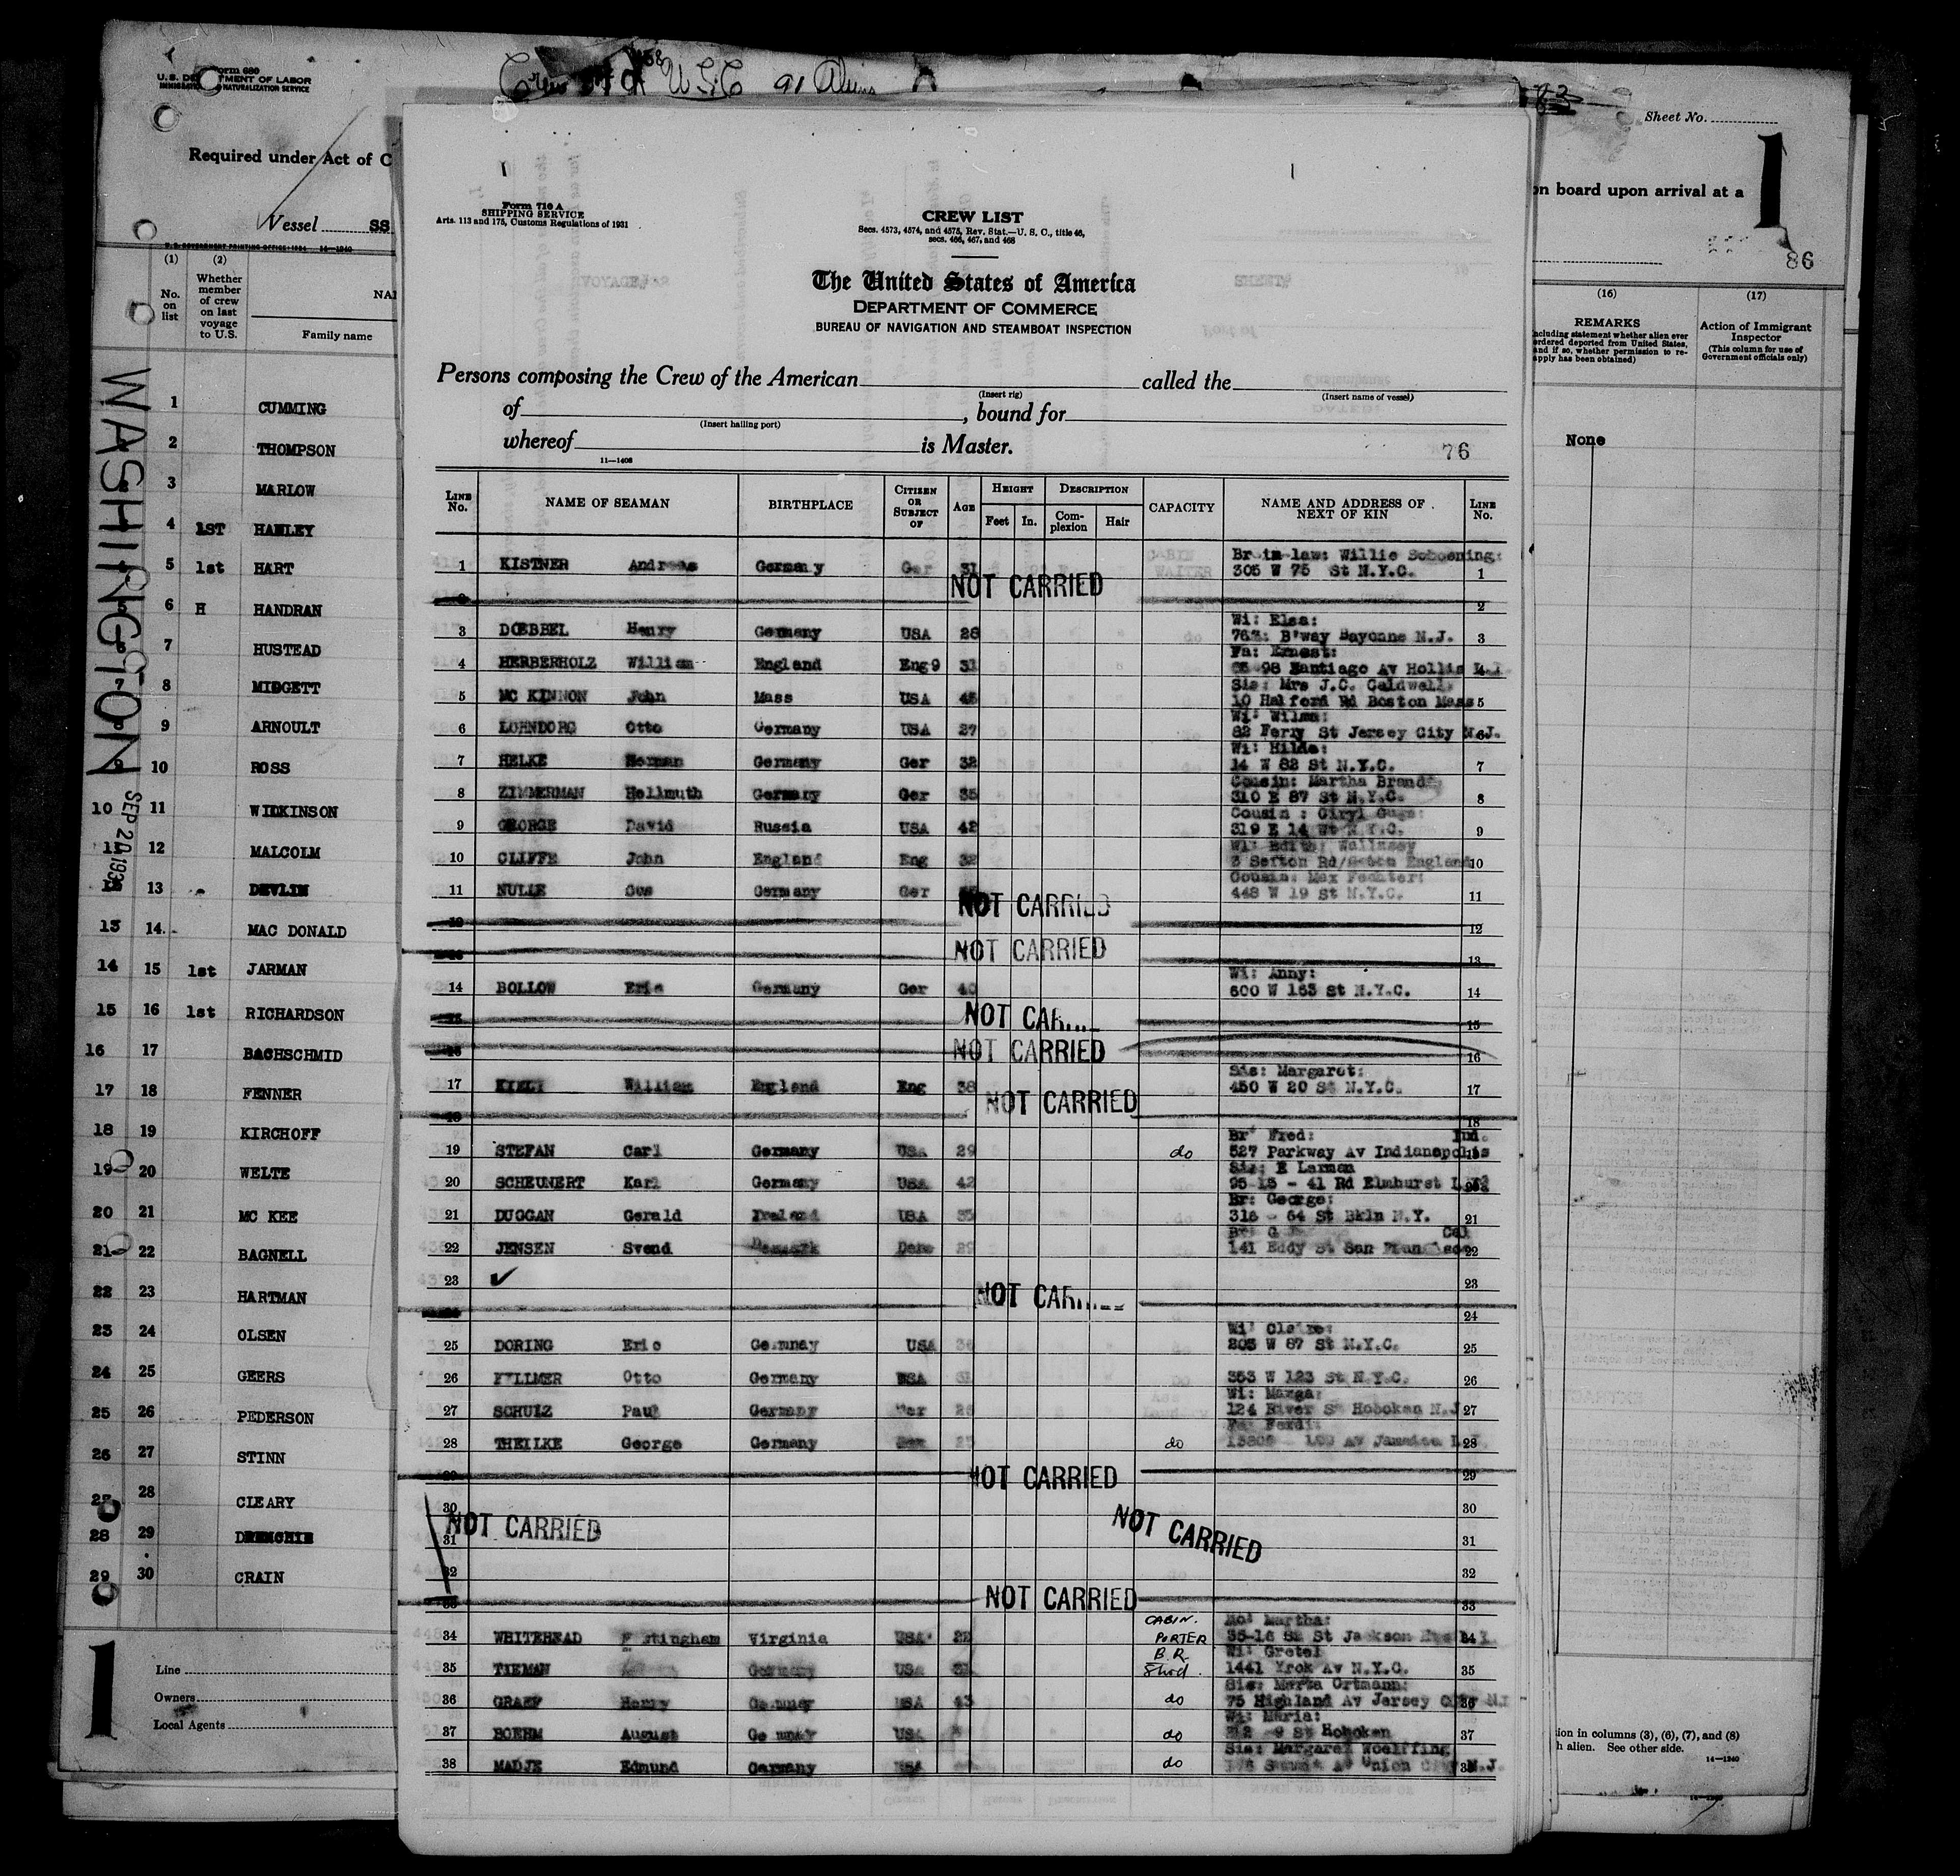 Form 680
U.S. DEPARTMENT OF LABOR
NATURALIZATION SERVICE
Required under Act of C
Vessel SS
U.S. GOVERNMENT PRINTING OFFICE: 1934 14—1240
(1) (2)
No. on list
Whether member of crew on last voyage to U.S.
NA
Family name
WASHINGTON
SEP 20 193
1 CUMMING
2 THOMPSON
3 MARLOW
4 1ST HANLEY
5 1st HART
6 H HANDRAN
7 HUSTEAD
8 MIDGETT
9 ARNOULT
10 ROSS
10 11 WILKINSON
11 12 MALCOLM
13 DEVLIN
13 14 MAC DONALD
14 15 1st JARMAN
15 16 1st RICHARDSON
16 17 BACHSCHMID
17 18 FENNER
18 19 KIRCHOFF
19 20 WELTE
20 21 MC KEE
21 22 BAGNELL
22 23 HARTMAN
23 24 OLSEN
24 25 GEERS
25 26 PEDERSON
26 27 STINN
27 28 CLEARY
28 29
29 30 CRAIN
1
Line
Owners
Local Agents
U.S.C 91 Aliens
Form 710 A
SHIPPING SERVICE
Arts. 113 and 175, Customs Regulations of 1931
CREW LIST
Secs. 4573, 4574, and 4575, Rev. Stat.—U. S. C., title 46,
secs. 466, 467, and 468
The United States of America
DEPARTMENT OF COMMERCE
BUREAU OF NAVIGATION AND STEAMBOAT INSPECTION
Persons composing the Crew of the American called the
(Insert rig) (Insert name of vessel)
of , bound for
(Insert hailing port)
whereof is Master.
11—1408
76
LINE No. NAME OF SEAMAN BIRTHPLACE CITIZEN OR SUBJECT OF AGE HEIGHT Feet In. DESCRIPTION Complexion Hair CAPACITY NAME AND ADDRESS OF NEXT OF KIN LINE No.
Br in law: Willie Schoening:
1 KISTNER Andreas Germany Ger 31 305 W 75 St N.Y.C. 1
NOT CARRIED
2
Wi: Elsa:
3 DOEBBEL Henry Germany USA 28 B'way Bayonne N.J. 3
Fa: Ernest:
4 HERBERHOLZ William England Eng 31 98 Santiago Av Hollis L.I. 4
Sis: Mrs J.C. Caldwell
5 MC KINNON John Mass USA 45 10 Halford Rd Boston Mass 5
Wi: Wilma:
6 LOHNDORG Otto Germany USA 27 82 Ferry St Jersey City N.J. 6
Wi: Hilda:
7 HELKE Herman Germany Ger 32 14 W 82 St N.Y.C. 7
Cousin: Martha Brand
8 ZIMMERMAN Hellmuth Germany Ger 35 310 E 87 St N.Y.C. 8
Cousin : Ciryl
9 GEORGE David Russia USA 42 319 E 14 St N.Y.C. 9
Wi: Edith; Wallasey
10 CLIFFE John England Eng 32 3 Sefton Rd England 10
Cousin: Max Fechter:
11 NULLE Gus Germany Ger 448 W 19 St N.Y.C. 11
NOT CARRIED
12 12
NOT CARRIED
13
Wi: Anny:
14 BOLLOW Eric Germany Ger 40 600 W 163 St N.Y.C. 14
NOT CAR
15
NOT CARRIED
16
Sis: Margaret:
17 KIELY William England Eng 38 450 W 20 St N.Y.C. 17
NOT CARRIED
18
Br Fred: Ind.
19 STEFAN Carl Germany USA 29 do 527 Parkway Av Indianapolis 19
Sis: E Larman
20 SCHEUNERT Karl Germany USA 42 95-15 - 41 Rd Elmhurst L.I. 20
Br: George:
21 DUGGAN Gerald Ireland USA 35 318 - 64 St Bkln N.Y. 21
Cal
22 JENSEN Svend Denmark Dane 29 141 Eddy St San Francisco 22
23 ✓ 23
NOT CAR
24
Wi: Claire:
25 DORING Eric Gemnay USA 203 W 87 St N.Y.C. 25
26 FELLMER Otto Germany USA 31 353 W 123 St N.Y.C. 26
Wi: Marga:
27 SCHULZ Paul Germany Ger 124 River St Hoboken N.J 27
Fa: Ferdi:
28 THEILKE George Germany do Av Jamaica 28
NOT CARRIED
29 29
30 30
NOT CARRIED NOT CARRIED
31 31
32 32
NOT CARRIED
33
Mo: Martha:
34 WHITEHEAD Virginia USA 22 CABIN. PORTER 35-16 St Jackson 34
Wi: Gretel
35 TIEMAN Germany USA B.R. Stwd. 1441 Yrok Av N.Y.C. 35
Sis: Marta Ortmann:
36 GRAEF Henry Gemnay USA 43 do 75 Highland Av Jersey City N.J 36
Wi: Maria:
37 BOEHM August Ge mnay USA do 9 St Hoboken 37
Sis: Margaret Woelffing
38 MADJE Edmund Germany USA do Summit Av Union City N.J. 38
Sheet No.
1
on board upon arrival at a
86
(16) (17)
REMARKS
(Including statement whether alien ever
ordered deported from United States,
and if so, whether permission to re-
apply has been obtained)
Action of Immigrant
Inspector
(This column for use of
Government officials only)
None
ion in columns (3), (6), (7), and (8)
h alien. See other side.
14—1240